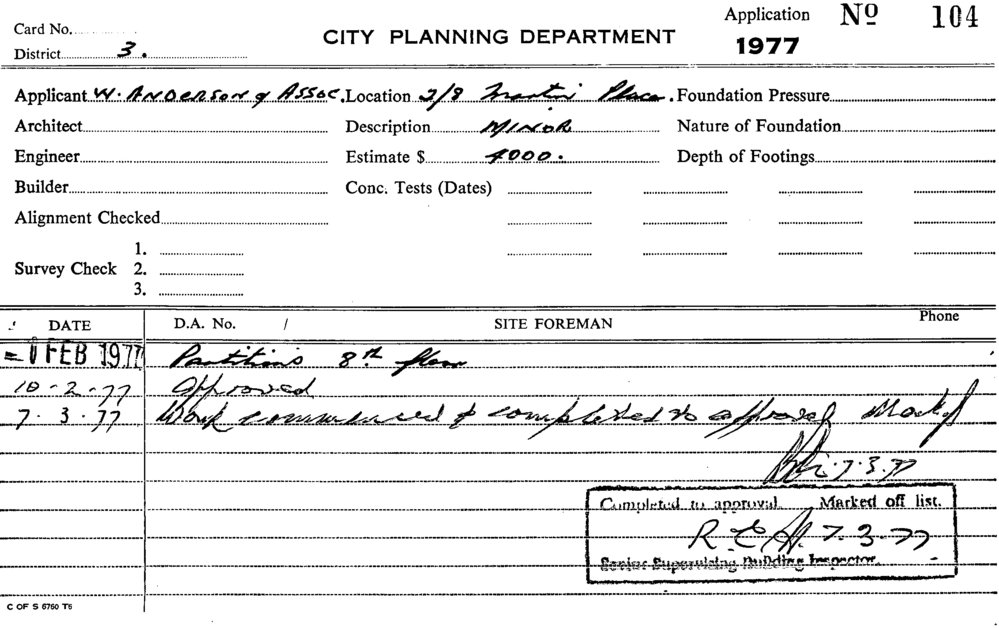 Card No.
Application Nº 104
CITY PLANNING DEPARTMENT
1977
District 3.
Applicant W. ANDERSON & ASSOC. Location 2/8 Martin Place. Foundation Pressure
Architect Description MINOR Nature of Foundation
Engineer Estimate $ 4000. Depth of Footings
Builder Conc. Tests (Dates)
Alignment Checked
1.
Survey Check 2.
3.
DATE D.A. No. / SITE FOREMAN Phone
1 FEB 1977 Partitions 8th floor
10-2-77 Approved
7.3.77 Work commenced & completed to approval Marked
7.3.77
Completed to approval. Marked off list.
7-3-77
Senior Supervising Building Inspector.
C OF S 6760 T6